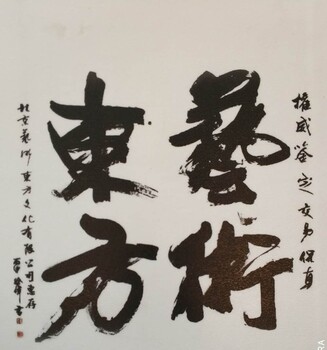 權威鉴定交易保真
藝術
東方
北京藝術東方文化有限公司惠存